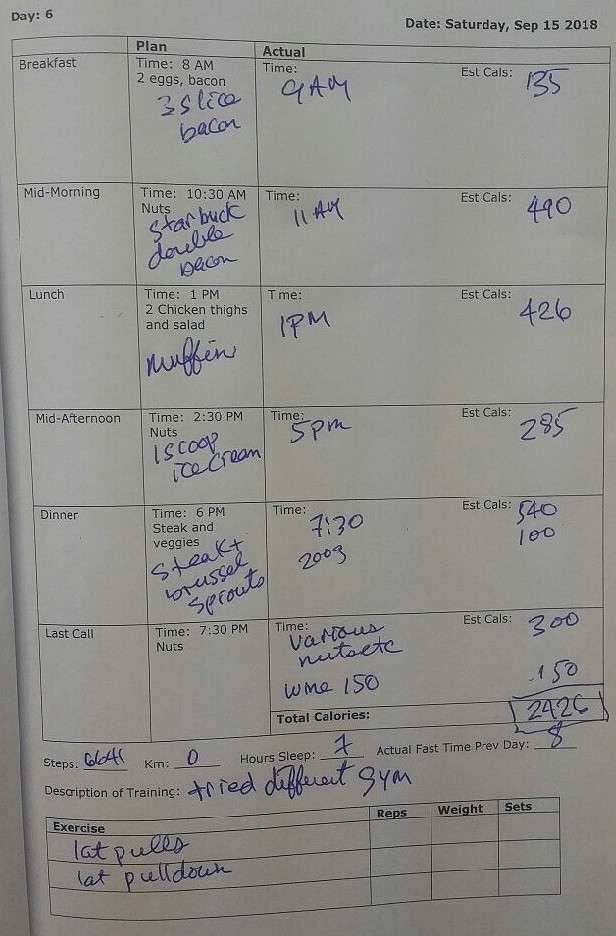 Day: 6
Date: Saturday, Sep 15 2018
Plan Actual
Breakfast Time: 8 AM Time: Est Cals: 135
2 eggs, bacon 9 AM
3 slice
bacon
Mid-Morning Time: 10:30 AM Time: Est Cals: 490
Nuts 11 AM
Starbuck
double
bacon
Lunch Time: 1 PM Time: Est Cals: 426
2 Chicken thighs 1PM
and salad
muffin
Mid-Afternoon Time: 2:30 PM Time: Est Cals: 285
Nuts 5pm
1 scoop
ice cream
Dinner Time: 6 PM Time: Est Cals: 540
Steak and 7:30 100
veggies
steak +
brussel
sprouts
Last Call Time: 7:30 PM Time: Est Cals: 300
Nuts various
nuts etc
150 150
Total Calories: 2426
Steps: 6641 Km: 0 Hours Sleep: 7 Actual Fast Time Prev Day: 8
Description of Training: tried different gym
Exercise Reps Weight Sets
lat pulls
lat pulldown